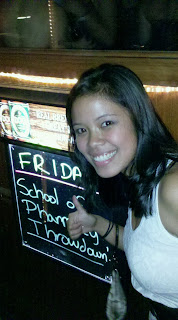 FRIDA
School o
Pharm cy
Throwdown!